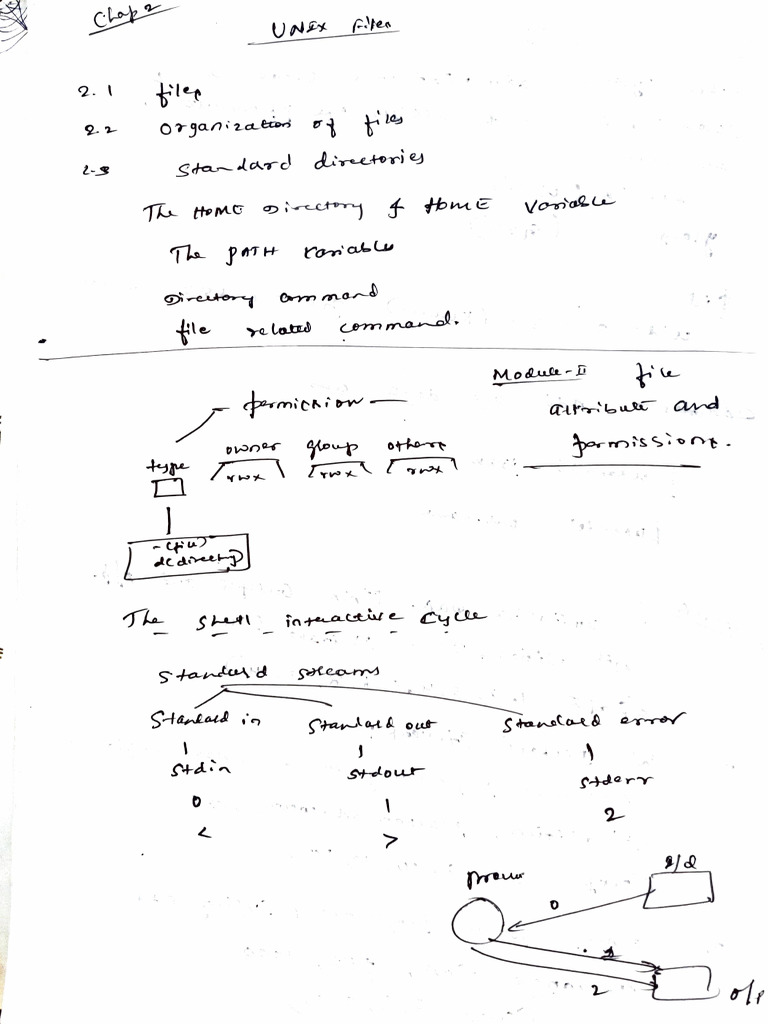 Chap 2
UNIX Files
2.1 files
2.2 Organization of files
2.3 Standard directories
The HOME Directory & HOME Variable
The PATH Variables
Directory command
file related command.
Module-II file
attribute and
permissions.
permission
owner group others
type rwx rwx rwx
- (file)
d(directory)
The Shell interactive Cycle
Standard streams
Standard in Standard out Standard error
stdin stdout stderr
0 1 2
< >
0
2
o/p